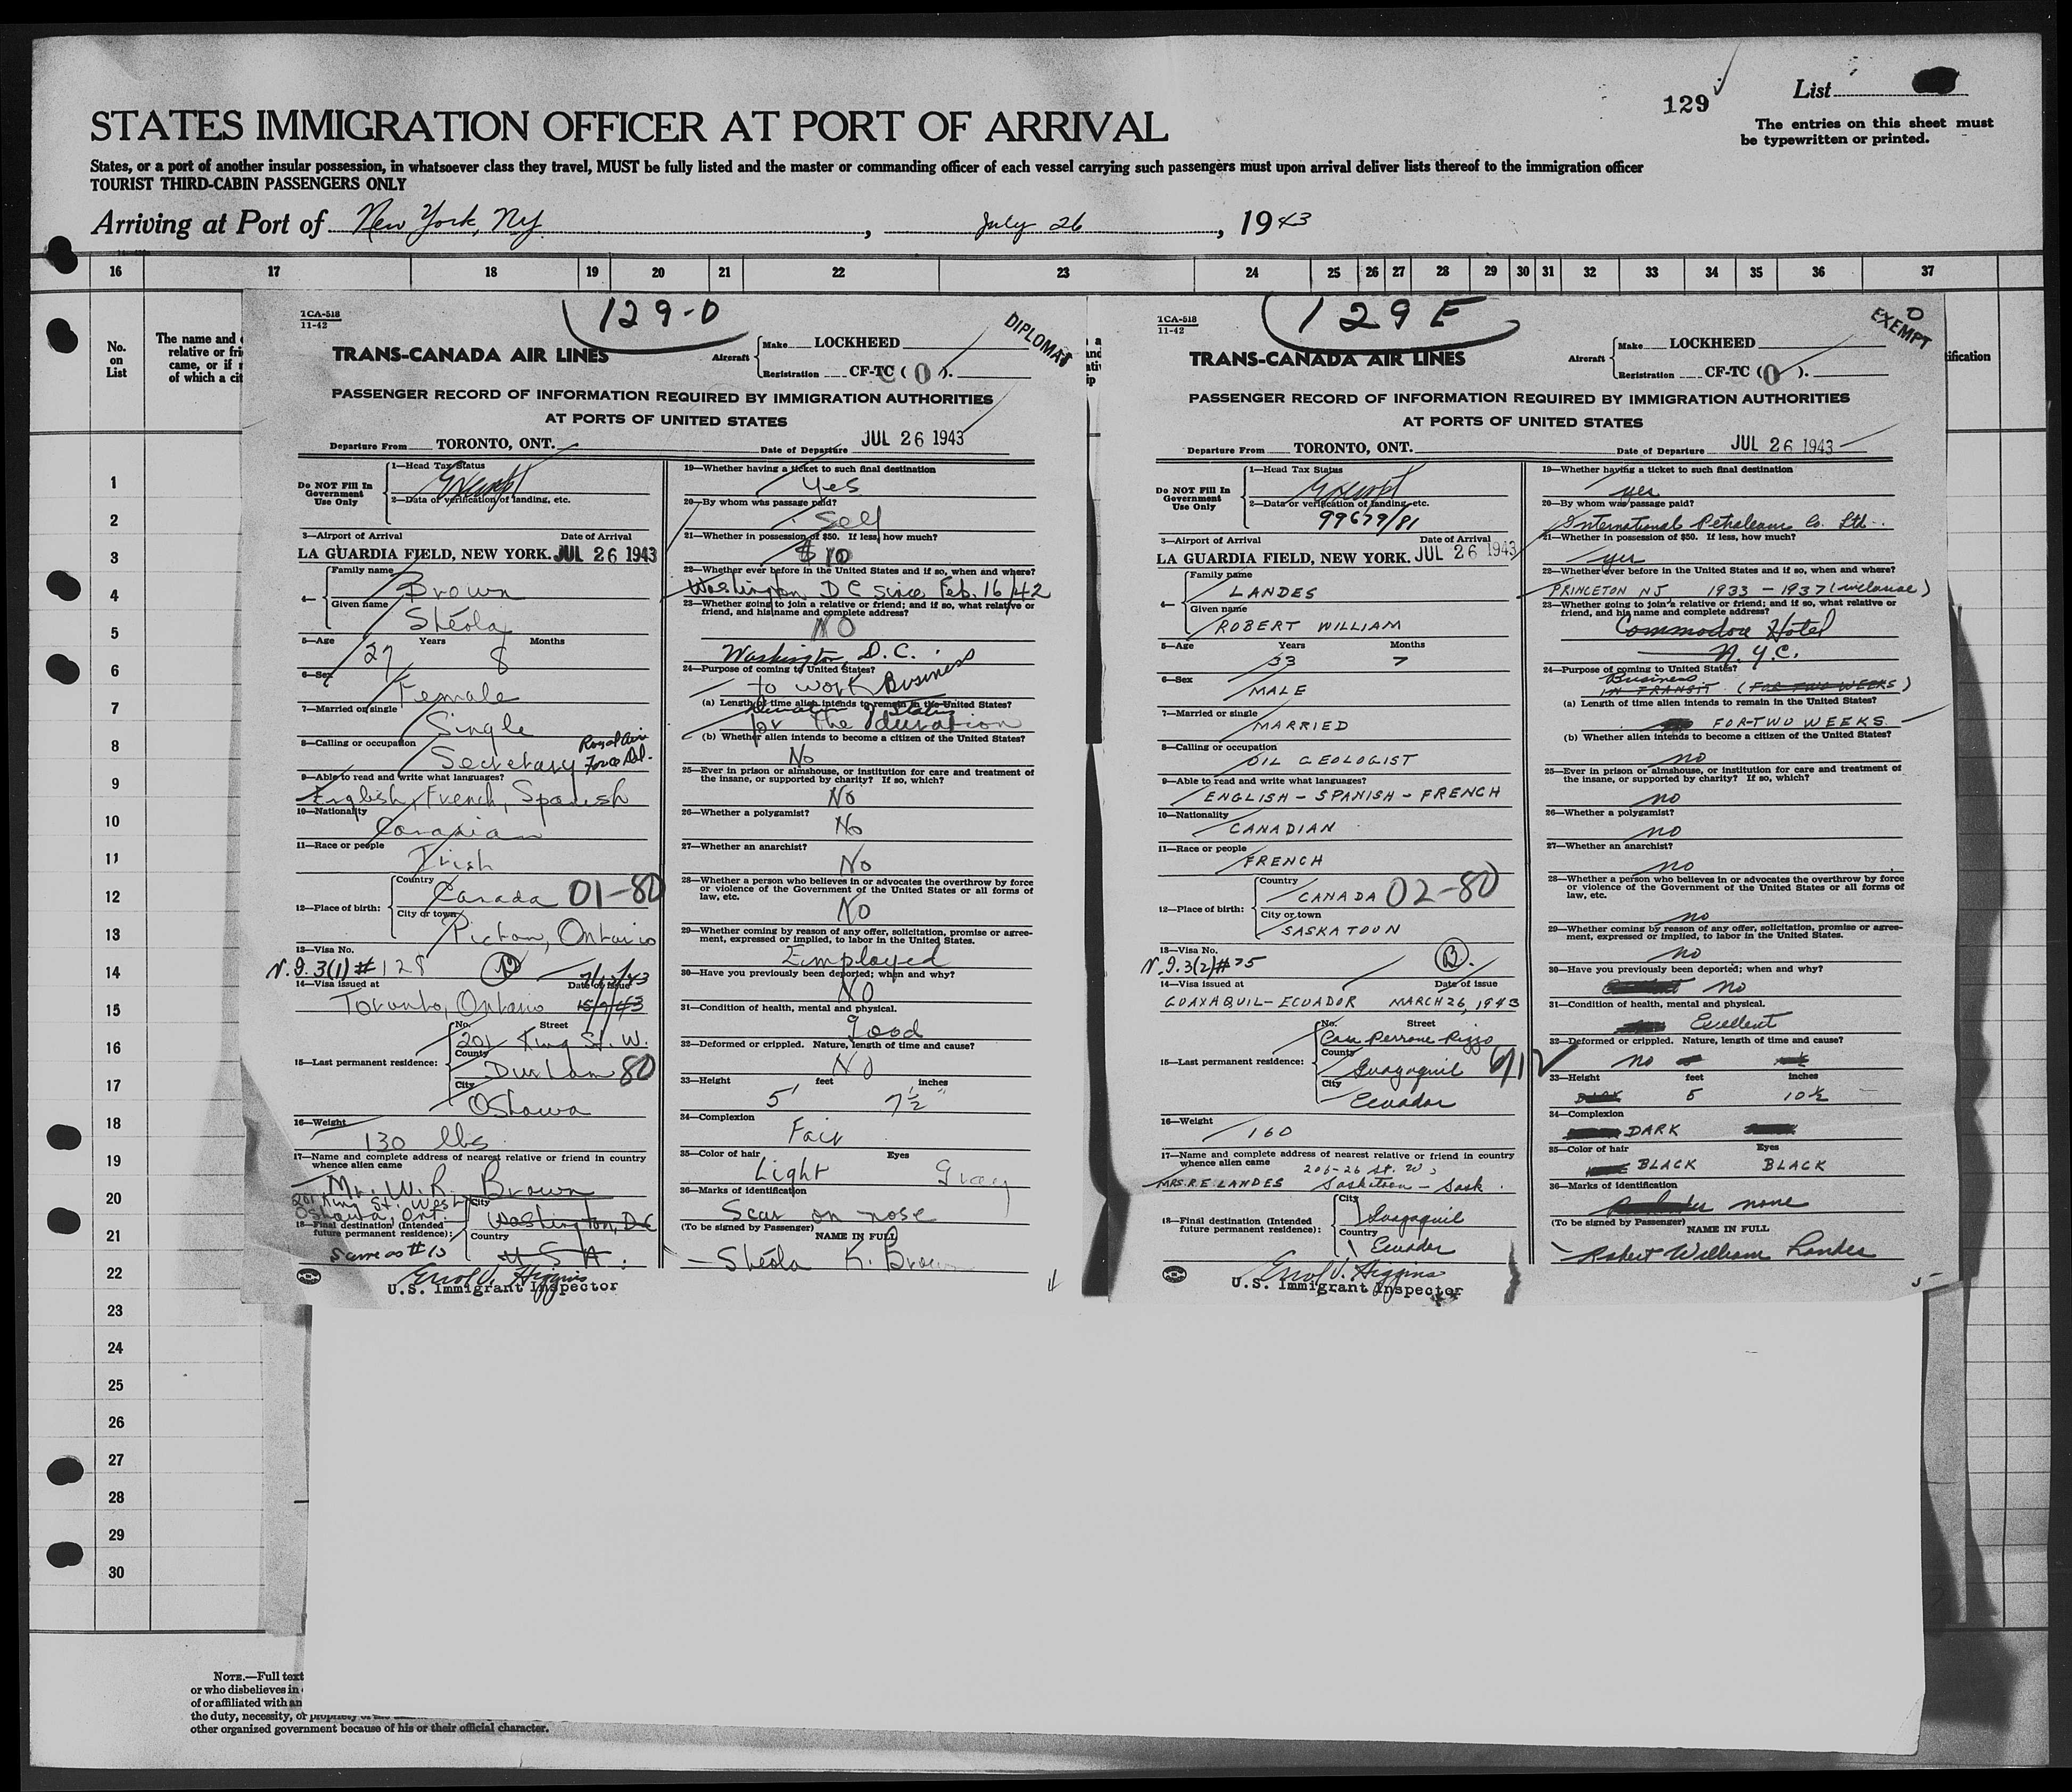 129
List
The entries on this sheet must
be typewritten or printed.
STATES IMMIGRATION OFFICER AT PORT OF ARRIVAL
States, or a port of another insular possession, in whatsoever class they travel, MUST be fully listed and the master or commanding officer of each vessel carrying such passengers must upon arrival deliver lists thereof to the immigration officer
TOURIST THIRD-CABIN PASSENGERS ONLY
Arriving at Port of New York, NY, July 26, 1943
16 17 18 19 20 21 22 23 24 25 26 27 28 29 30 31 32 33 34 35 36 37
No.
on
List
The name and
relative or fri
came, or if
of which a cit
1
2
3
4
5
6
7
8
9
10
11
12
13
14
15
16
17
18
19
20
21
22
23
24
25
26
27
28
29
30
TCA-518
11-42
129-D
DIPLOMAT
TRANS-CANADA AIR LINES
Aircraft
Make LOCKHEED
Registration CF-TC (O).
PASSENGER RECORD OF INFORMATION REQUIRED BY IMMIGRATION AUTHORITIES
AT PORTS OF UNITED STATES
Departure From TORONTO, ONT. Date of Departure JUL 26 1943
Do NOT Fill In
Government
Use Only
1—Head Tax Status
Exempt
2—Data of verification of landing, etc.
3—Airport of Arrival Date of Arrival
LA GUARDIA FIELD, NEW YORK. JUL 26 1943
4—
Family name
Brown
Given name
Sheola
5—Age Years Months
27 8
6—Sex
Female
7—Married or single
Single
8—Calling or occupation
Secretary Royal Air
Force Del.
9—Able to read and write what languages?
English, French, Spanish
10—Nationality
Canadian
11—Race or people
Irish
12—Place of birth:
Country
Canada 01-80
City or town
Picton, Ontario
13—Visa No.
N.I. 3(1) #128
14—Visa issued at Date of issue
Toronto, Ontario
15—Last permanent residence:
No. Street
201 King St. W.
County
Durham 80
City
Oshawa
16—Weight
130 lbs
17—Name and complete address of nearest relative or friend in country
whence alien came
Mr. W. R. Brown
201 King St. West
Oshawa, Ont.
18—Final destination (Intended
future permanent residence):
Same as #15
City
Washington, DC
Country
U S A.
Errol V. Higgins
U.S. Immigrant Inspector
19—Whether having a ticket to such final destination
Yes
20—By whom was passage paid?
Self
21—Whether in possession of $50. If less, how much?
$10
22—Whether ever before in the United States and if so, when and where?
Washington D C since Feb. 16/42
23—Whether going to join a relative or friend; and if so, what relative or
friend, and his name and complete address?
NO
Washington, D.C.
24—Purpose of coming to United States?
to work Business
(a) Length of time alien intends to remain in the United States?
Duration of Status
for the duration
(b) Whether alien intends to become a citizen of the United States?
No
25—Ever in prison or almshouse, or institution for care and treatment of
the insane, or supported by charity? If so, which?
No
26—Whether a polygamist?
No
27—Whether an anarchist?
No
28—Whether a person who believes in or advocates the overthrow by force
or violence of the Government of the United States or all forms of
law, etc.
No
29—Whether coming by reason of any offer, solicitation, promise or agree-
ment, expressed or implied, to labor in the United States.
Employed
30—Have you previously been deported; when and why?
NO
31—Condition of health, mental and physical.
good
32—Deformed or crippled. Nature, length of time and cause?
NO
33—Height feet inches
5' 7½"
34—Complexion
Fair
35—Color of hair Eyes
Light Gray
36—Marks of identification
Scar on nose
(To be signed by Passenger) NAME IN FULL
Sheola K. Brown
TCA-518
11-42
129 E
O
EXEMPT
TRANS-CANADA AIR LINES
Aircraft
Make LOCKHEED
Registration CF-TC (O).
PASSENGER RECORD OF INFORMATION REQUIRED BY IMMIGRATION AUTHORITIES
AT PORTS OF UNITED STATES
Departure From TORONTO, ONT. Date of Departure JUL 26 1943
Do NOT Fill In
Government
Use Only
1—Head Tax Status
Exempt
2—Data or verification of landing, etc.
99679/81
3—Airport of Arrival Date of Arrival
LA GUARDIA FIELD, NEW YORK. JUL 26 1943
4—
Family name
LANDES
Given name
ROBERT WILLIAM
5—Age Years Months
33 7
6—Sex
MALE
7—Married or single
MARRIED
8—Calling or occupation
OIL GEOLOGIST
9—Able to read and write what languages?
ENGLISH - SPANISH - FRENCH
10—Nationality
CANADIAN
11—Race or people
FRENCH
12—Place of birth:
Country
CANADA 02-80
City or town
SASKATOON
13—Visa No.
N.I. 3(2) #75 B.
14—Visa issued at Date of issue
GUAYAQUIL - ECUADOR MARCH 26, 1943
15—Last permanent residence:
No. Street
Casa Perrone Rizzo
County
Guayaquil
City
Ecuador
16—Weight
160
17—Name and complete address of nearest relative or friend in country
whence alien came 205-26 St. W.
MRS. R.E. LANDES Saskatoon - Sask.
18—Final destination (Intended
future permanent residence):
City
Guayaquil
Country
Ecuador
Errol V. Higgins
U.S. Immigrant Inspector
19—Whether having a ticket to such final destination
yes
20—By whom was passage paid?
International Petroleum Co. Ltd.
21—Whether in possession of $50. If less, how much?
yes
22—Whether ever before in the United States and if so, when and where?
PRINCETON NJ, 1933 - 1937 (inclusive)
23—Whether going to join a relative or friend; and if so, what relative or
friend, and his name and complete address?
Commodore Hotel
N.Y.C.
24—Purpose of coming to United States?
Business
IN TRANSIT (FOR TWO WEEKS)
(a) Length of time alien intends to remain in the United States?
FOR TWO WEEKS
(b) Whether alien intends to become a citizen of the United States?
no
25—Ever in prison or almshouse, or institution for care and treatment of
the insane, or supported by charity? If so, which?
no
26—Whether a polygamist?
no
27—Whether an anarchist?
no
28—Whether a person who believes in or advocates the overthrow by force
or violence of the Government of the United States or all forms of
law, etc.
no
29—Whether coming by reason of any offer, solicitation, promise or agree-
ment, expressed or implied, to labor in the United States.
no
30—Have you previously been deported; when and why?
no
31—Condition of health, mental and physical.
Excellent
32—Deformed or crippled. Nature, length of time and cause?
no
33—Height feet inches
5 10½
34—Complexion
DARK
35—Color of hair Eyes
BLACK BLACK
36—Marks of identification
none
(To be signed by Passenger) NAME IN FULL
Robert William Landes
NOTE.—Full text
or who disbelieves in
of or affiliated with an
the duty, necessity, or propriety
other organized government because of his or their official character.